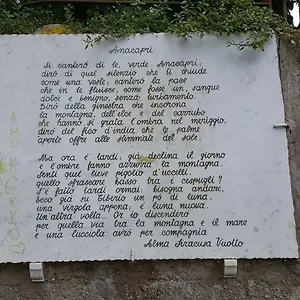 Anacapri
Sì, canterò di te, verde Anacapri:
dirò di quel silenzio che ti chiude
come una veste; canterò la pace
che in te fluisce, come fosse un, sangue
dolce e benigno, senza turbamento.
Dirò della ginestra che incorona
la montagna, dell'elce e del carrubo
che fanno sì grata l'ombra nel meriggio,
dirò del fico d'india che le palme
aperte offre alle stimmate del sole.
Ma ora è tardi: già declina il giorno
e l'ombre fanno azzurra la montagna.
Senti quel lieve pigolio d'uccelli,
quello frascare basso tra i cespugli?
S'è fatto tardi ormai: bisogna andare.
Ecco già su Tiberio un po' di luna,
una virgola appena: è luna nuova.
Un'altra volta... Or io discenderò
per quella via tra la montagna e il mare
e una lucciola avrò per compagnia
Alma Siracusa Vuotto